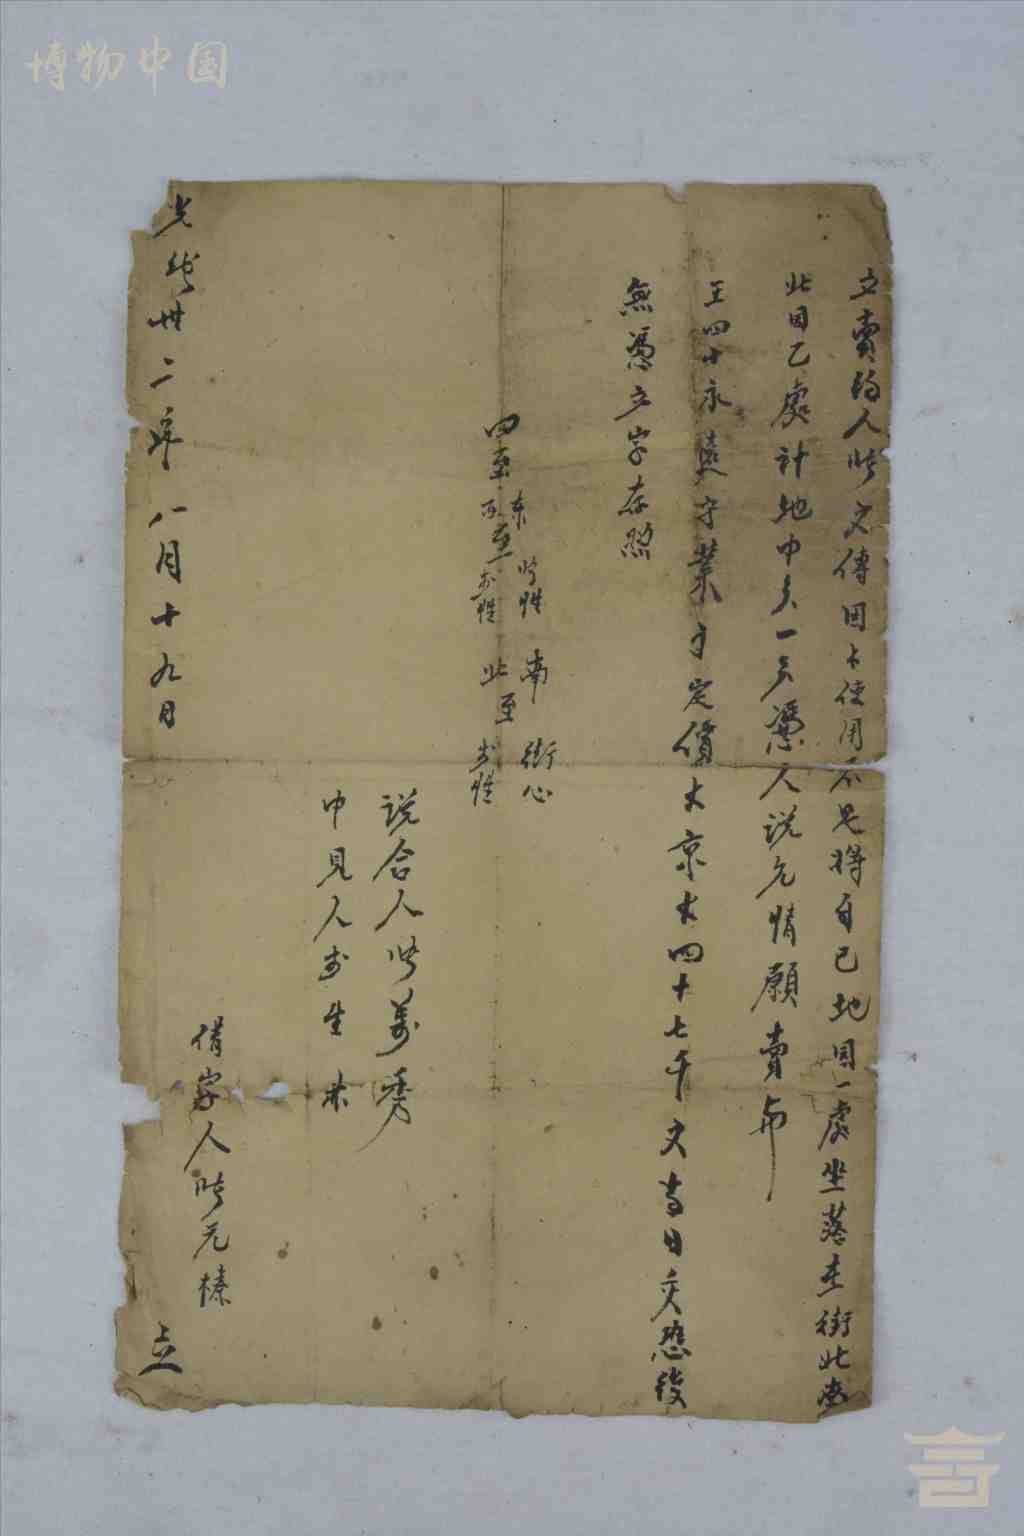 博物中国
立賣約人時文傳因上使用不足將自己地園一處坐落在街北
此園乙處計地中一憑人說允情願賣與
王四十永遠守業言定價大京大四十七千文當日交恐後
無憑立字存照
四至 東 時姓 南 街心
西至 姓 北至 姓
說合人時萬秀
中見人 生
借字人時元榛
光緒卅二年八月十九日 立